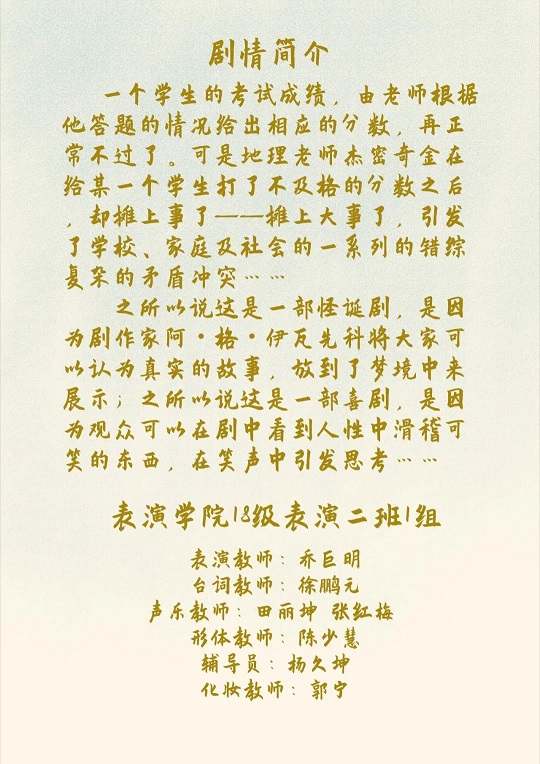 剧情简介
一个学生的考试成绩，由老师根据
他答题的情况给出相应的分数，再正
常不过了。可是地理老师杰密奇金在
给某一个学生打了不及格的分数之后
，却摊上事了——摊上大事了，引发
了学校、家庭及社会的一系列的错综
复杂的矛盾冲突……
之所以说这是一部怪诞剧，是因
为剧作家阿·格·伊瓦先科将大家可
以认为真实的故事，放到了梦境中来
展示；之所以说这是一部喜剧，是因
为观众可以在剧中看到人性中滑稽可
笑的东西，在笑声中引发思考……
表演学院18级表演二班1组
表演教师：乔巨明
台词教师：徐鹏元
声乐教师：田丽坤 张红梅
形体教师：陈少慧
辅导员：杨久坤
化妆教师：郭宁